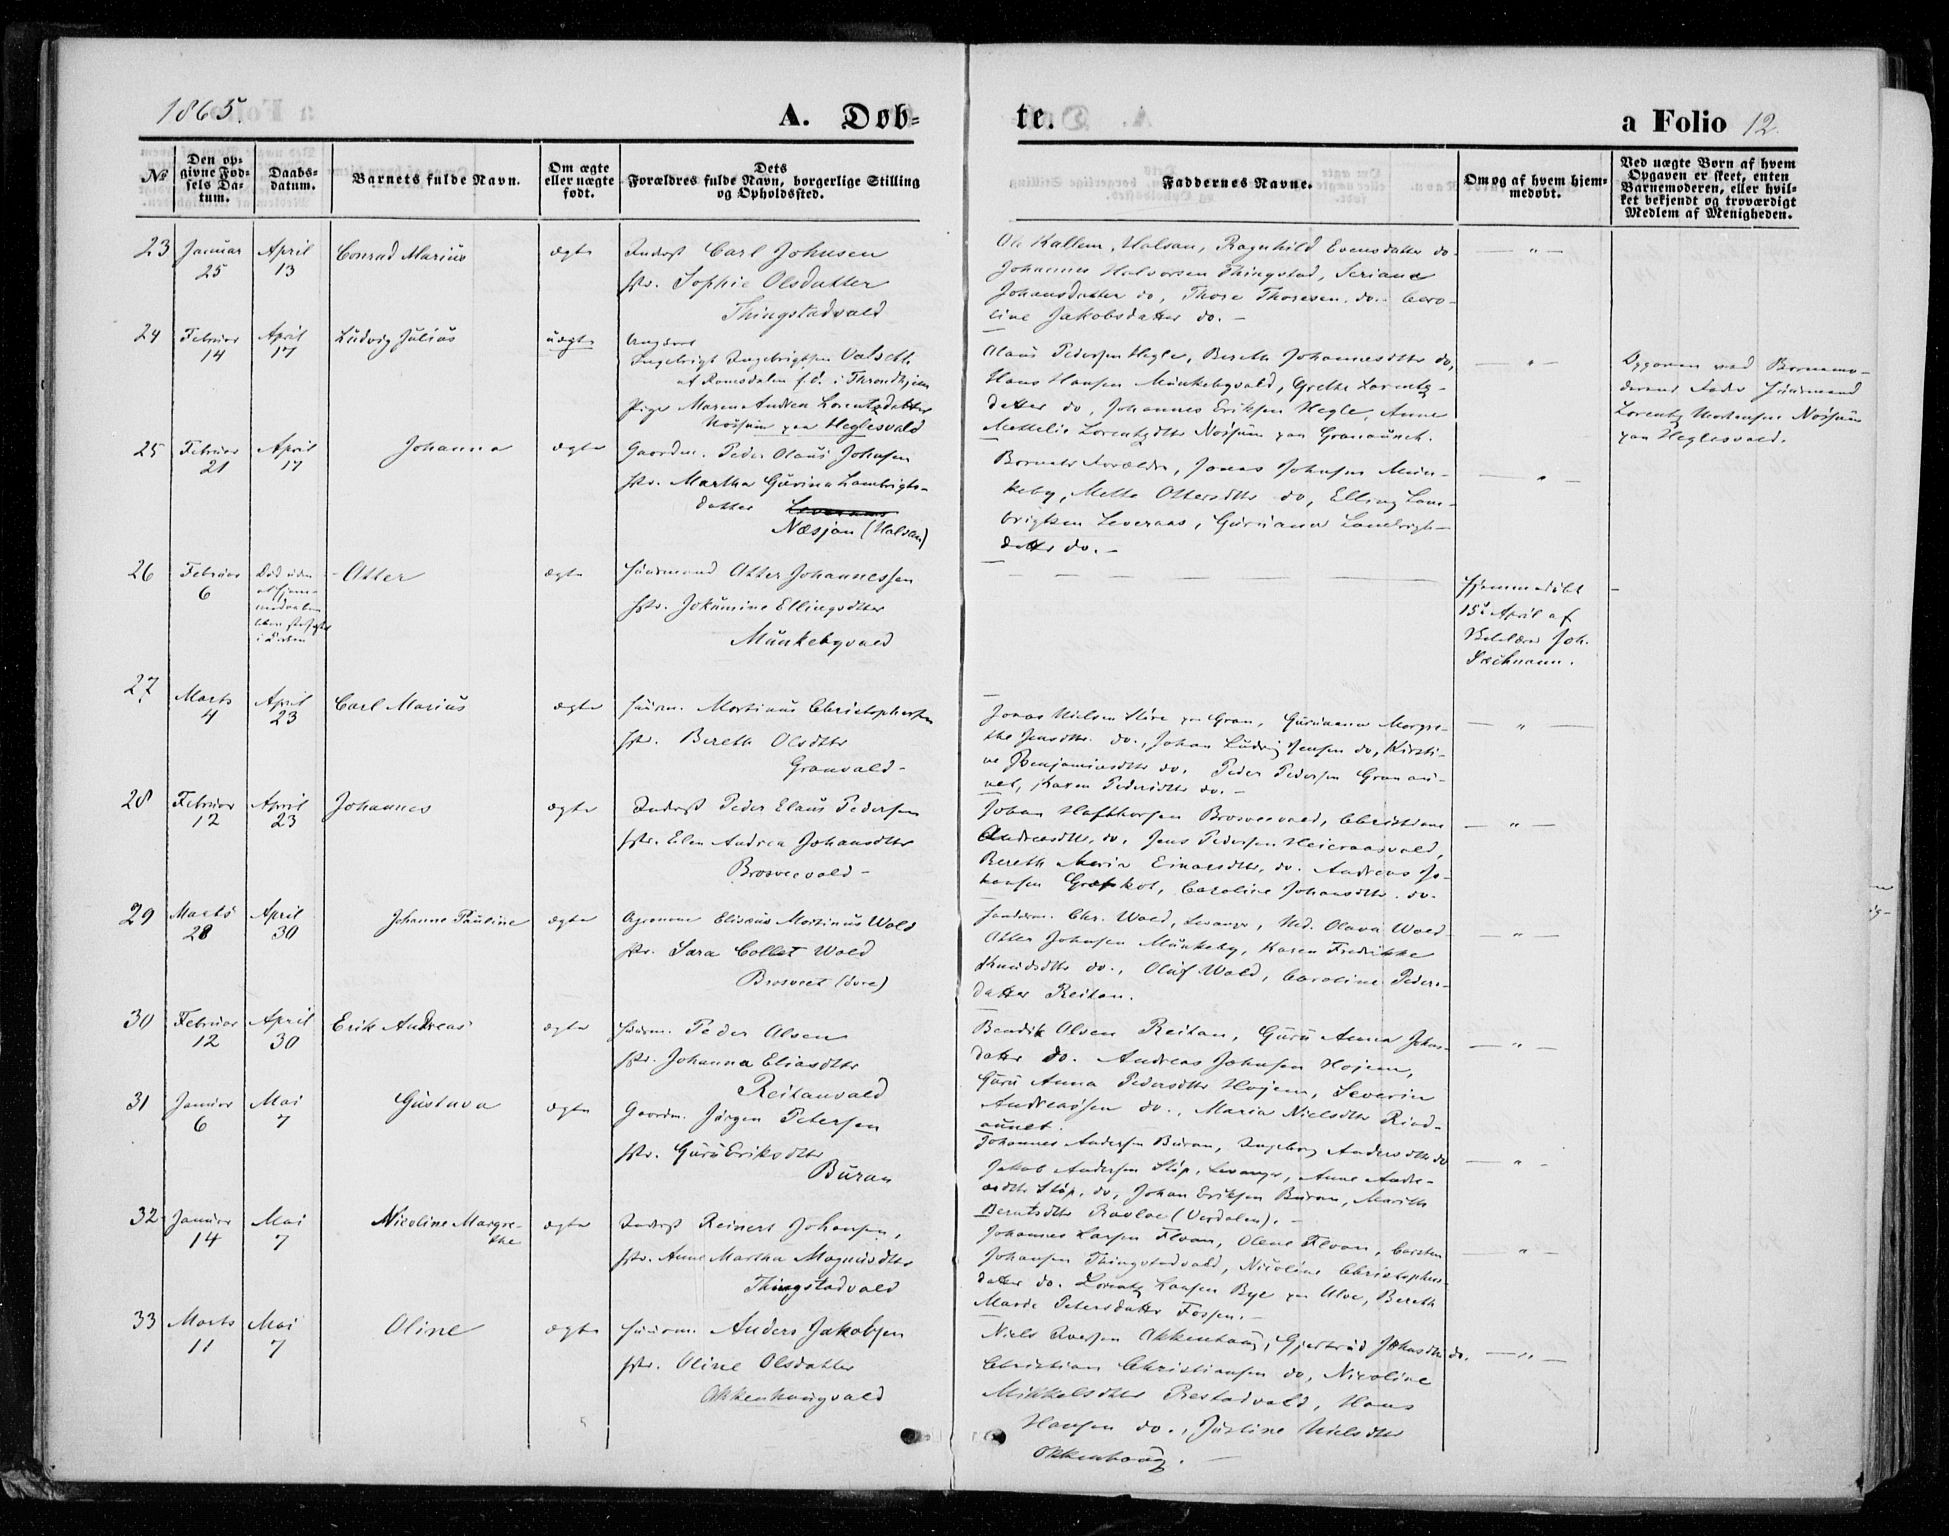 1865.
A. Døb-
te.
a Folio 12.
№
Den op-
givne Fød-
sels Da-
tum.
Daabs-
datum.
Barnets fulde Navn.
Om ægte
eller uægte
født.
Dets
Forældres fulde Navn, borgerlige Stilling
og Opholdssted.
Faddernes Navne.
Om og af hvem hjem-
medøbt.
Ved uægte Børn af hvem
Opgaven er skeet, enten
Barnemoderen, eller hvil-
ket bekjendt og troværdigt
Medlem af Menigheden.
23 Januar 25 April 13 Conrad Marius ægte
Inderst Carl Johnsen
Hstr. Sophie Olsdatter
Thingstadvald
Ole Kallem, Halsan, Ragnhild Evensdatter do
Johannes Halvorsen Thingstad, Seriane
Johansdatter do, Thore Thoresen do. Caro-
line Jakobsdatter do. -
24 Februar 14 April 17 Ludvig Julius uægte
Ungkarl
Ingebrigt Ingebrigtsen Valseth
af Romsdalen f.t. i Throndhjem
Pige Maren Andrea Lorentzdatter
Noisum paa Heglesvald
Olaus Pedersen Hegle, Bereth Johannesdtr do,
Hans Hansen Munkebyvald, Grethe Lorentz-
datter do, Johannes Eriksen Hegle, Anne
Mettelie Lorentzdtr Noisum paa Granaunet.
Opgaven ved Barnemo-
derens Fader Huusmand
Lorentz Mortensen Noisum
paa Heglesvald.
25 Februar 21 April 17 Johanna ægte
Gaardm. Peder Olaus Johnsen
Hstr. Martha Gurina Lambrigts-
datter Leveraas
Næsjan (Halsan)
Barnets Forældre, Jonas Johnsen Mun-
keby, Mette Ottersdtr do, Elling Lam-
brigtsen Leveraas, Guruanna Lambrigts-
datter do. -
26 Februar 6 Død uden
i Kirken
Otter ægte
Huusmand Otter Johannessen
Hstr. Jokumine Ellingsdtter
Munkebyvald
Hjemmedøbt
15de April af
Skolelærer Joh.
27 Marts 4 April 23 Carl Marius ægte
Huusm. Martinus Christophersen
Hstr. Bereth Olsdtter
Granvald -
Jonas Nielsen Støre paa Gran, Guruanna Margre-
the Jensdtr. do., Johan Ludvig Jensen do, Kirsti-
ne Benjaminsdtr do. Peder Pedersen Granau-
net, Karen Pedersdtr do. -
28 Februar 12 April 23 Johannes ægte
Inderst Peder Elaus Pedersen
Hstr. Elen Andrea Johansdtter
Brosveevald -
Johan Hafthorsen Brosveevald, Christiane
Andreasdtr, do, Jens Pedersen Heieraasvald,
Bereth Maria Einarsdtr, do. Andreas Jo-
hansen Græskot, Caroline Johansdtr. do.
29 Marts 28 April 30 Johanne Pauline ægte
Agronom Elisæus Martinus Wold
Hstr. Sara Collet Wold
Brosveet (øvre)
Handelsm. Chr. Wold, Levanger, Md. Olava Wold
Otter Johnsen Munkeby, Karen Fredrikke
Knudsdtr do., Oluf Wold, Caroline Peders-
datter Reitan.
30 Februar 12 April 30 Erik Andreas ægte
Huusm. Peder Olsen
Hstr. Johanna Eliasdtter
Reitanvald
Bendik Olsen Reitan, Guru Anna Johns-
datter do. Andreas Johnsen Hojem,
Guru Anna Pedersdtr Hojem, Severin
Andreassen do., Maria Nielsdtr Rind-
aunet.
31 Januar 6 Mai 7 Gustava ægte
Gaardm. Jørgen Petersen
Hstr. Guru Eriksdtr
Buran
Johannes Andersen Buran, Ingeborg Andersdtter do
Jakob Andersen Støp, Levanger, Anne Andre-
asdtr Støp, do, Johan Eriksen Buran, Marith
Berntsdtr Ravloe (Verdalen). -
32 Januar 14 Mai 7 Nicoline Margre-
the ægte
Inderst Reinert Johansen,
Hstr. Anne Martha Magnusdtter
Thingstadvald
Johannes Larsen Floan, Olene Floan, Carsten
Johansen Thingstadvald, Nicoline Christophers-
datter do. Lorentz Larsen Bye paa Ulve, Bereth
Marie Petersdatter Fossen. -
33 Marts 11 Mai 7 Oline ægte
Huusm. Anders Jakobsen
Hstr. Oline Olsdatter
Okkenhaugvald
Niels Iversen Okkenhaug, Gjertrud Johnsdtr do.
Christian Christiansen do, Nicoline
Mikkelsdtr Restadvald, Hans
Hansen do., Justine Nielsdtr
Okkenhaug. -